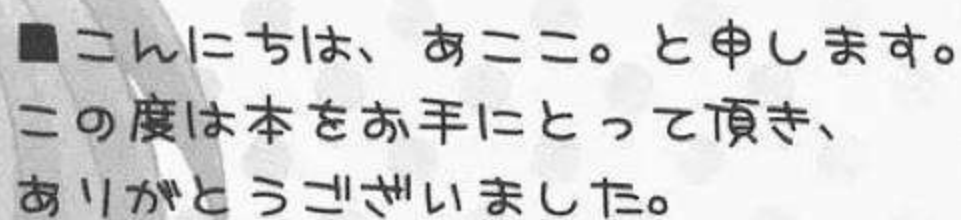 ■こんにちは、あここ。と申します。
この度は本をお手にとって頂き、
ありがとうございました。